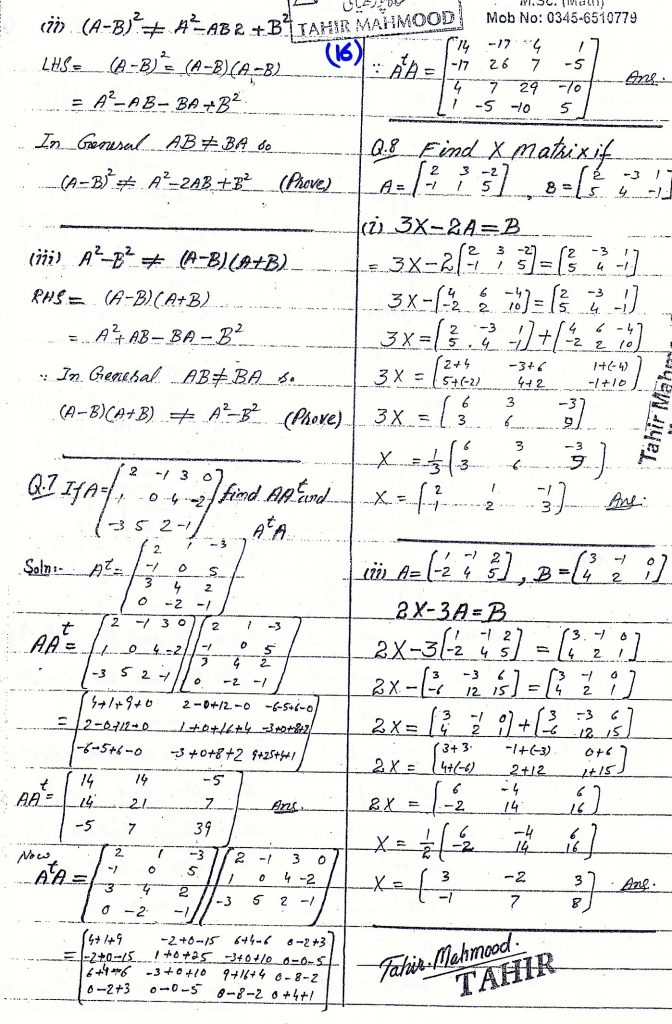 TAHIR MAHMOOD
(16)
M.Sc. (Math)
Mob No: 0345-6510779
(ii) (A-B)² ≠ A²-AB2+B²
LHS= (A-B)² = (A-B)(A-B)
= A²-AB-BA+B²
In General AB≠BA so
(A-B)² ≠ A²-2AB+B² (Prove)
(iii) A²-B² ≠ (A-B)(A+B)
RHS= (A-B)(A+B)
= A²+AB-BA-B²
∵ In General AB≠BA so
(A-B)(A+B) ≠ A²-B² (Prove)
Q.7 If A= [2 -1 3 0
1 0 4 -2 find AAᵗ and
-3 5 2 -1] AᵗA
Soln:- Aᵗ= [2 1 -3
-1 0 5
3 4 2
0 -2 -1]
AAᵗ= [2 -1 3 0] [2 1 -3
1 0 4 -2 -1 0 5
-3 5 2 -1] 3 4 2
0 -2 -1]
= [4+1+9+0 2-0+12-0 -6-5+6-0
2-0+12+0 1+0+16+4 -3+0+8+2
-6-5+6-0 -3+0+8+2 9+25+4+1]
AAᵗ= [14 14 -5
14 21 7 Ans.
-5 7 39]
Now
AᵗA= [2 1 -3] [2 -1 3 0
-1 0 5 1 0 4 -2
3 4 2 -3 5 2 -1]
0 -2 -1]
= [4+1+9 -2+0-15 6+4-6 0-2+3
-2+0-15 1+0+25 -3+0+10 0-0-5
6+4-6 -3+0+10 9+16+4 0-8-2
0-2+3 0-0-5 0-8-2 0+4+1]
∵ AᵗA= [14 -17 4 1
-17 26 7 -5 Ans.
4 7 29 -10
1 -5 -10 5]
Q.8 Find X Matrix if
A= [2 3 -2
-1 1 5], B= [2 -3 1
5 4 -1]
(i) 3X-2A=B
= 3X-2[2 3 -2
-1 1 5] = [2 -3 1
5 4 -1]
3X-[4 6 -4
-2 2 10] = [2 -3 1
5 4 -1]
3X= [2 -3 1
5 4 -1] + [4 6 -4
-2 2 10]
3X= [2+4 -3+6 1+(-4)
5+(-2) 4+2 -1+10]
3X= [6 3 -3
3 6 9]
X = 1/3 [6 3 -3
3 6 9]
X = [2 1 -1
1 2 3] Ans.
(ii) A= [1 -1 2
-2 4 5], B= [3 -1 0
4 2 1]
2X-3A=B
2X-3[1 -1 2
-2 4 5] = [3 -1 0
4 2 1]
2X-[3 -3 6
-6 12 15] = [3 -1 0
4 2 1]
2X= [3 -1 0
4 2 1] + [3 -3 6
-6 12 15]
2X= [3+3 -1+(-3) 0+6
4+(-6) 2+12 1+15]
2X = [6 -4 6
-2 14 16]
X = 1/2 [6 -4 6
-2 14 16]
X = [3 -2 3
-1 7 8] Ans.
Tahir Mahmood.
TAHIR